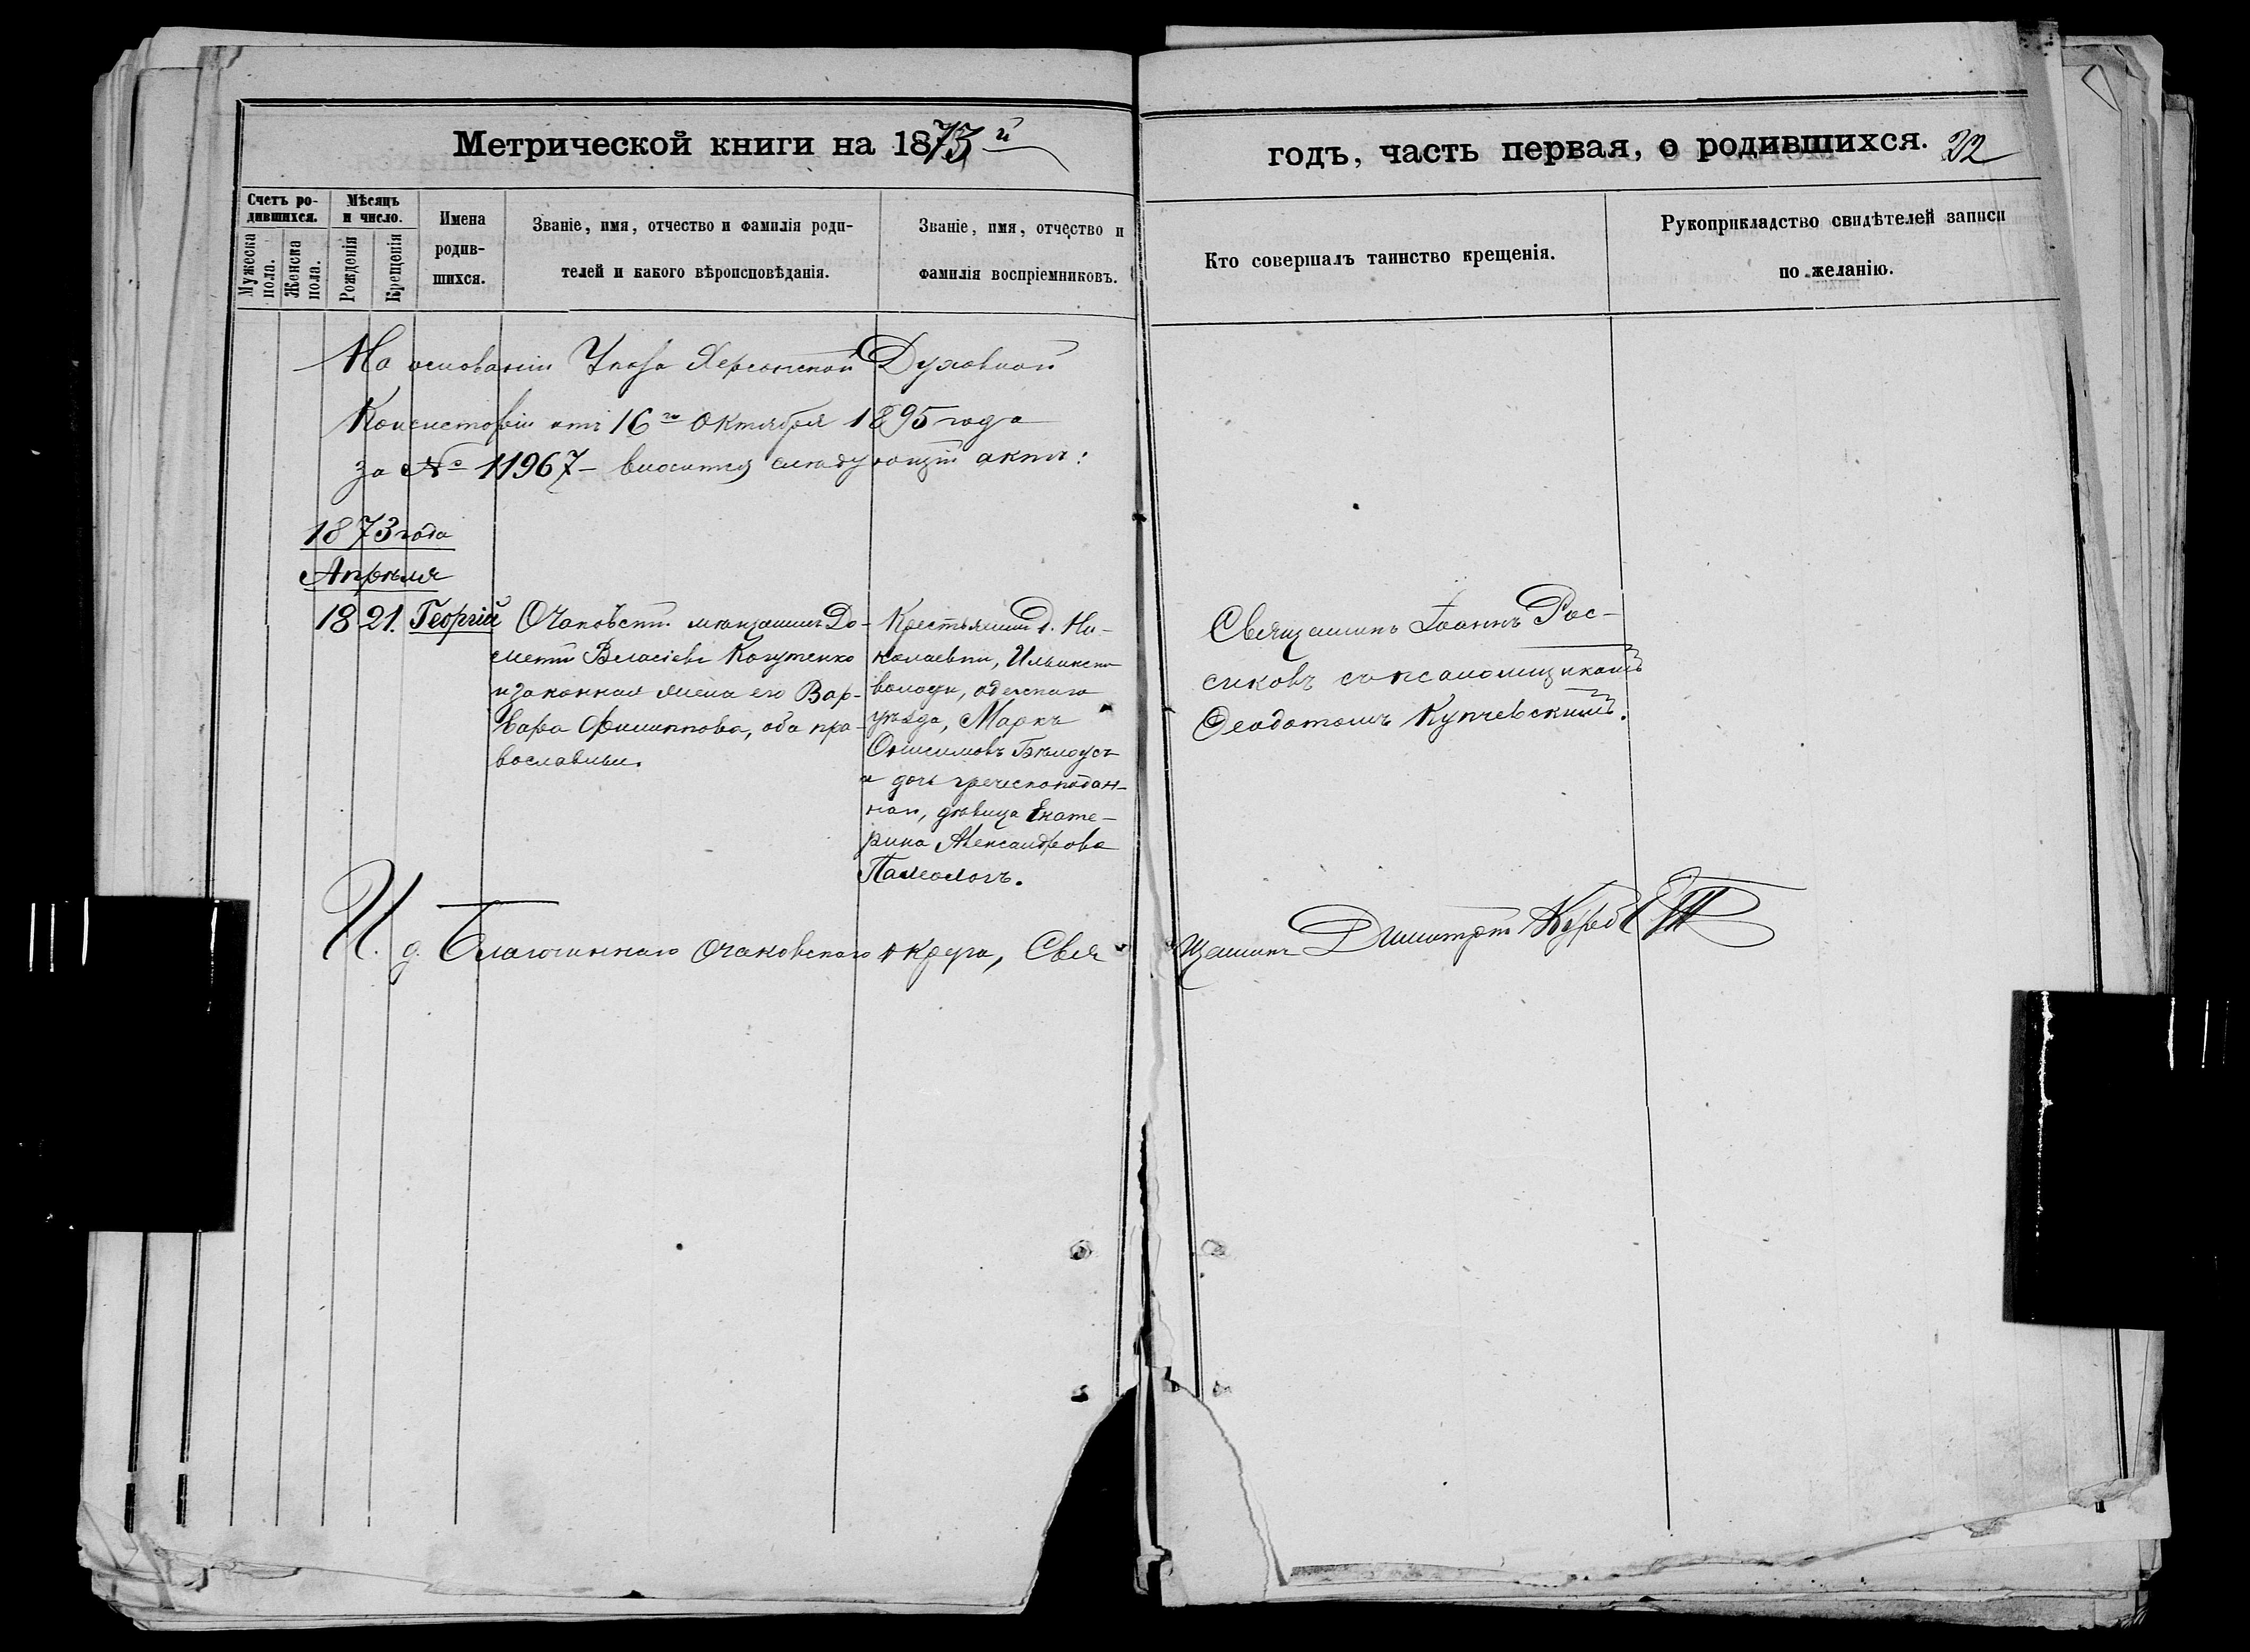 Метрической книги на 1873й
годъ, часть первая, о родившихся. 22
Счетъ ро-
дившихся.
Мужеска
пола.
Женска
пола.
Мѣсяцъ
и число.
Рожденія
Крещенія
Имена
родив-
шихся.
Званіе, имя, отчество и фамилія роди-
телей и какого вѣроисповѣданія.
Званіе, имя, отчество и
фамилія воспріемниковъ.
Кто совершалъ таинство крещенія.
Рукоприкладство свидѣтелей записи
по желанію.
На основаніи Указа Херсонской Духовной
Консисторіи отъ 16го Октября 1895 года
за № 11967 – вносится слѣдующій актъ:
1873 года
Апрѣля
18 21. Георгій
Очаковскій мѣщанинъ До-
Власіевъ Когутенко
и законная жена его Вар-
вара Филиппова, оба пра-
вославные.
Крестьянинъ д. Ни-
колаевки, Ильинской
волости, одесскаго
уѣзда, Маркъ
Онисимовъ Бѣлоусъ
и дочь греческоподан-
ная, дѣвица Екате-
рина Александрова
Палеологъ.
Священникъ Іоаннъ Рос-
сиковъ съ псаломщикомъ
Ѳеодотомъ Купчевскимъ.
И. д. Благочиннаго Очаковскаго округа, Свя-
щенникъ Димитрій